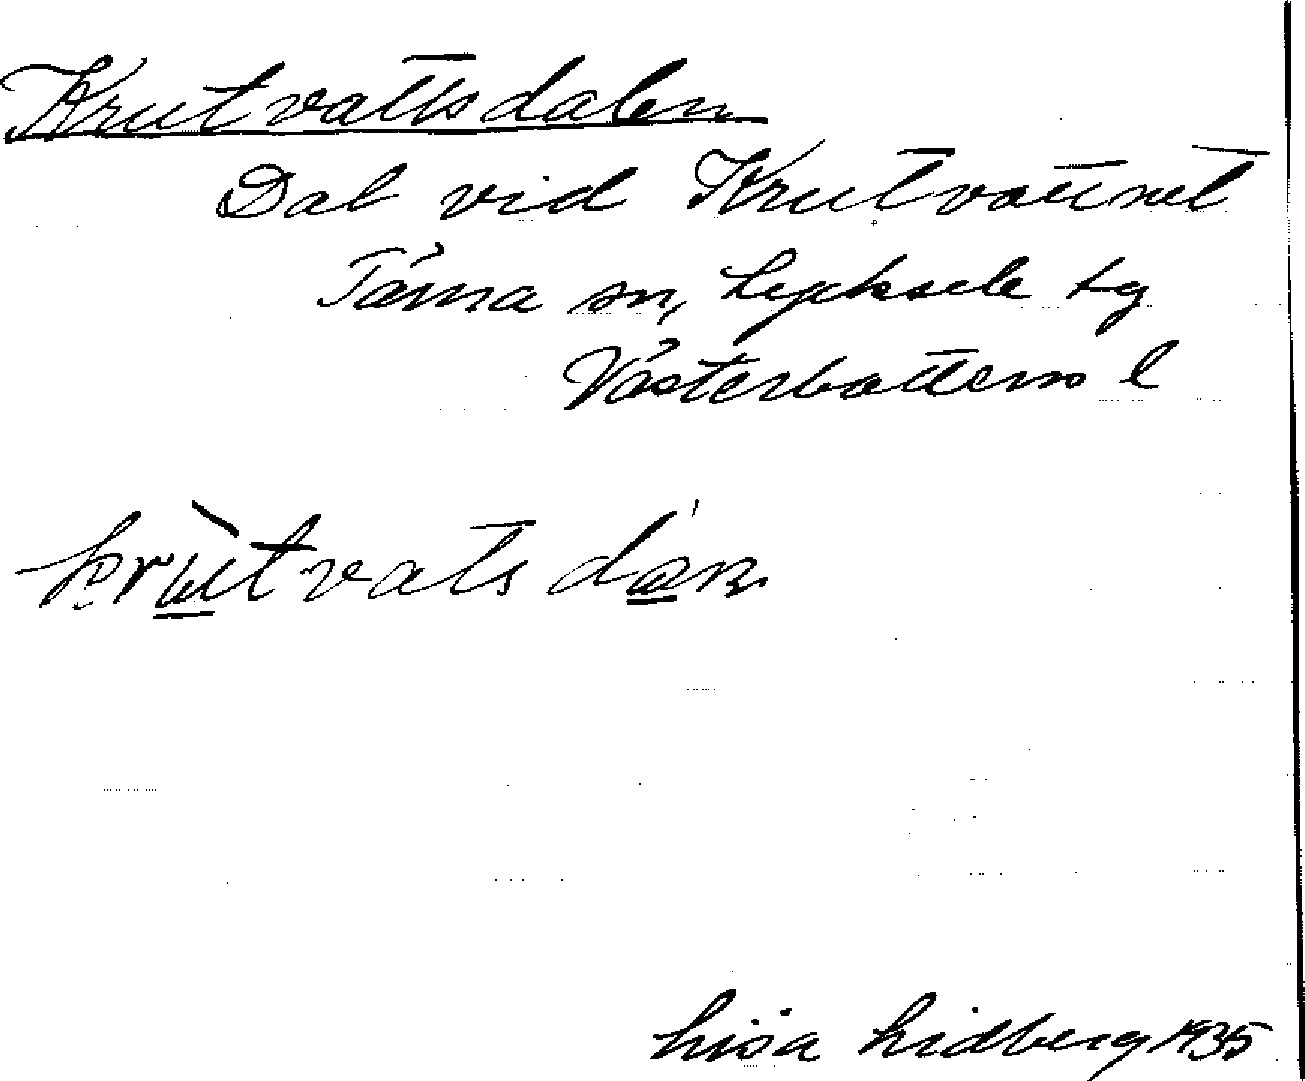 Krutvattsdalen
Dal vid Krutvattnet
Tärna sn, Lycksele tg
Västerbottens l
krùtvats dán
Lisa Lidberg 1935